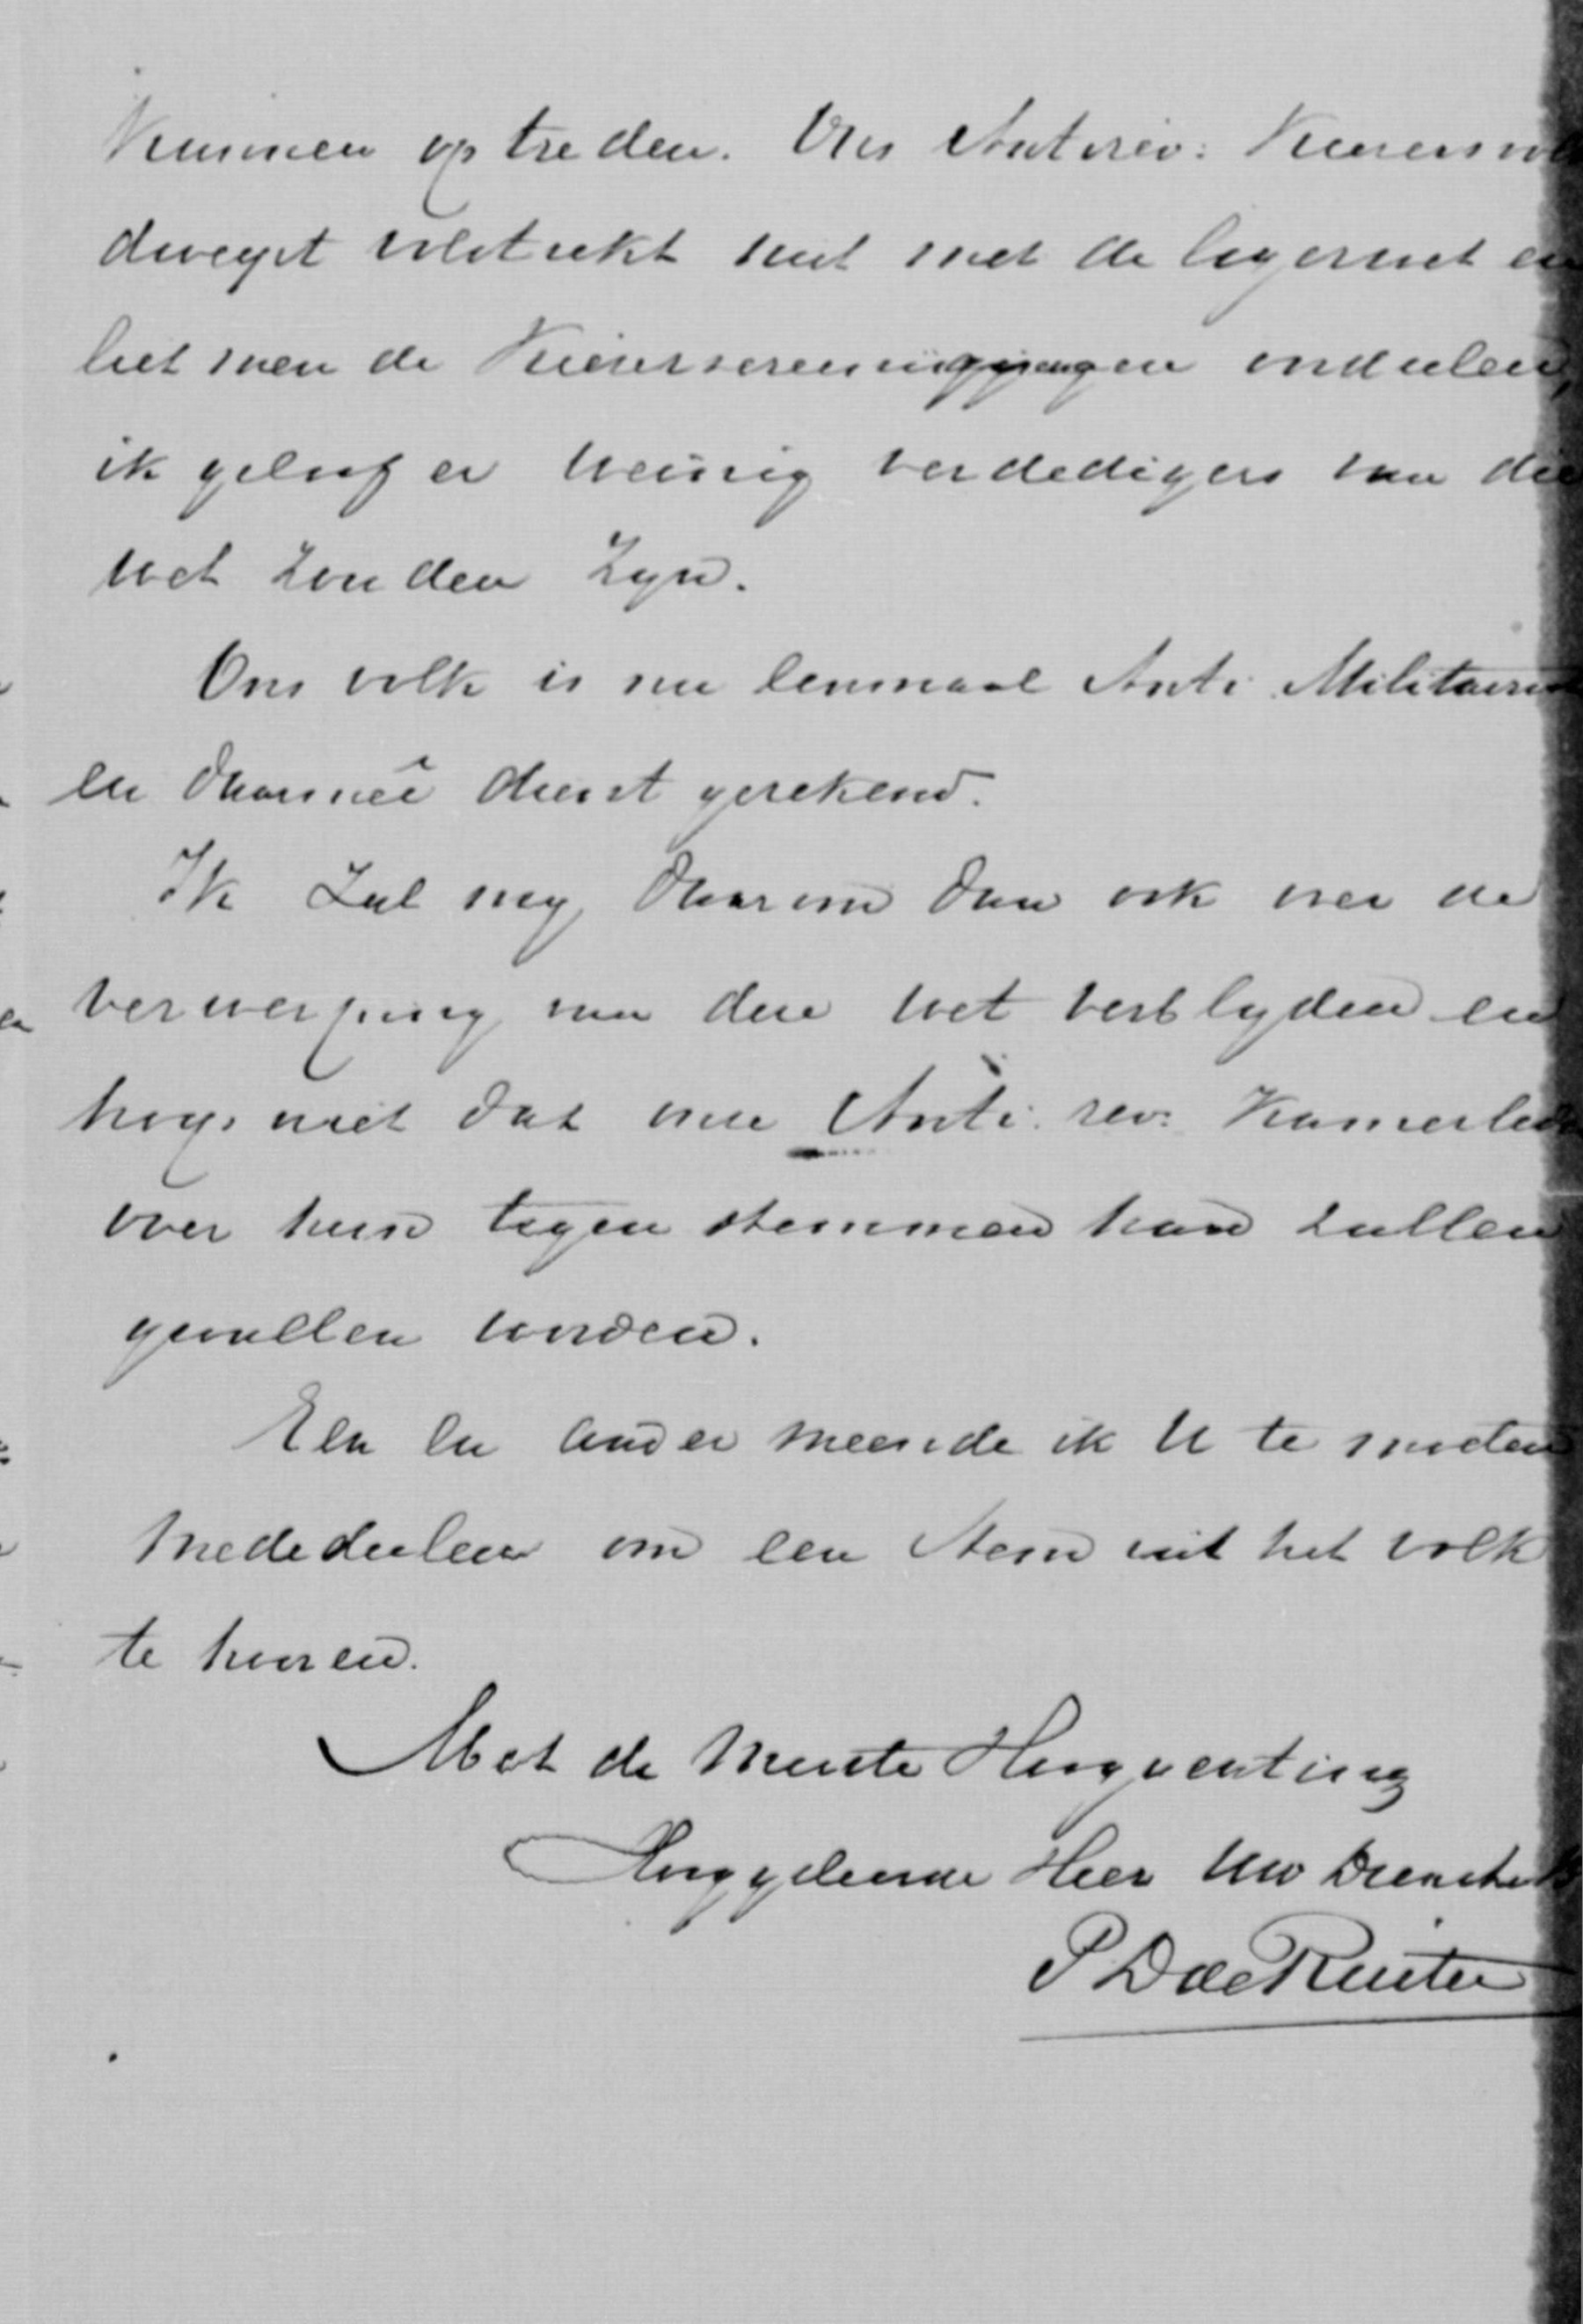 Kunnen op treden. Ons Antirev: Kiezersvolk
dweept volstrekt niet met de legerwet en
liet men de Kiesvereenigingen oordeelen,
ik geloof er weinig verdedigers van die
wet zouden zyn.
Ons volk is nu eenmaal Anti Militairist
en daarmeê dient gerekend.
Ik zal my daarom dan ook over de
verwerping van deze wet verblyden en
hoop niet dat onze Anti: rev: Kamerleden
over hun tegen stemmen hard zullen
gevallen worden.
Een en ander meende ik U te moeten
mededeelen om een stem uit het volk
te hooren.
Met de meeste Hoogachting
Hoogedelende Heer Uw Dienstw
P D de Ruiter